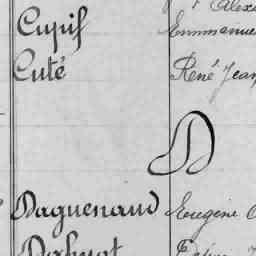 Alex
Cupif Emmanuel
Cuté René Jean
D
Daguenaud Eugène
Dahuot